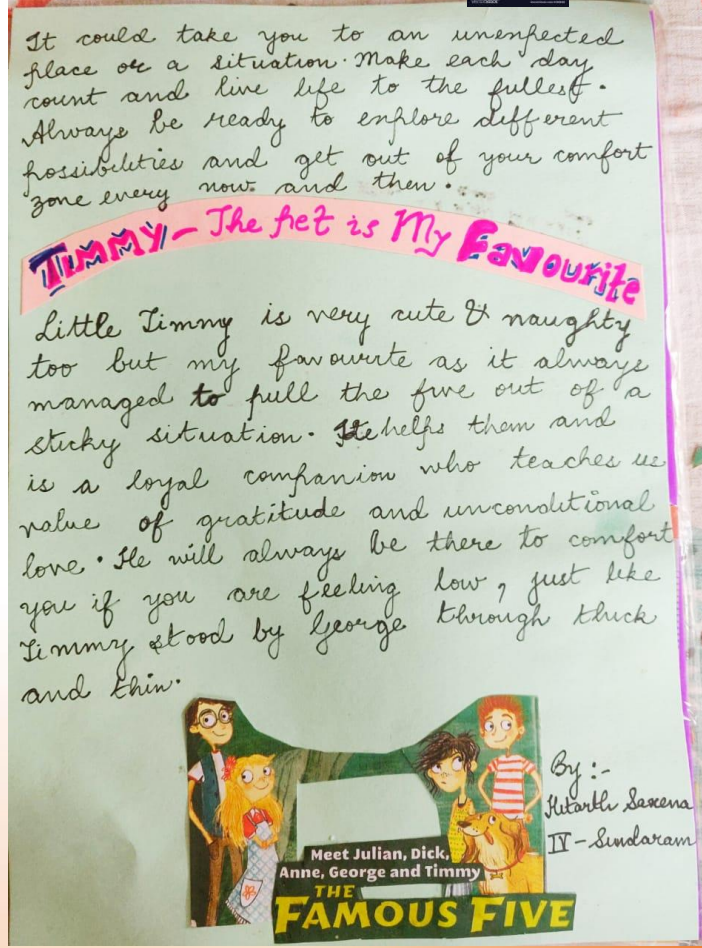 It could take you to an unexpected
place or a situation. Make each day
count and live life to the fullest.
Always be ready to explore different
possibilities and get out of your comfort
zone every now and then.
Timmy - The Pet is My Favourite
Little Timmy is very cute & naughty
too but my favourite as it always
managed to pull the five out of a
sticky situation. He helps them and
is a loyal companion who teaches us
value of gratitude and unconditional
love. He will always be there to comfort
you if you are feeling low, just like
Timmy stood by George through thick
and thin.
By :-
Hitarth Saxena
IV - Sundaram
Meet Julian, Dick,
Anne, George and Timmy
THE
FAMOUS FIVE